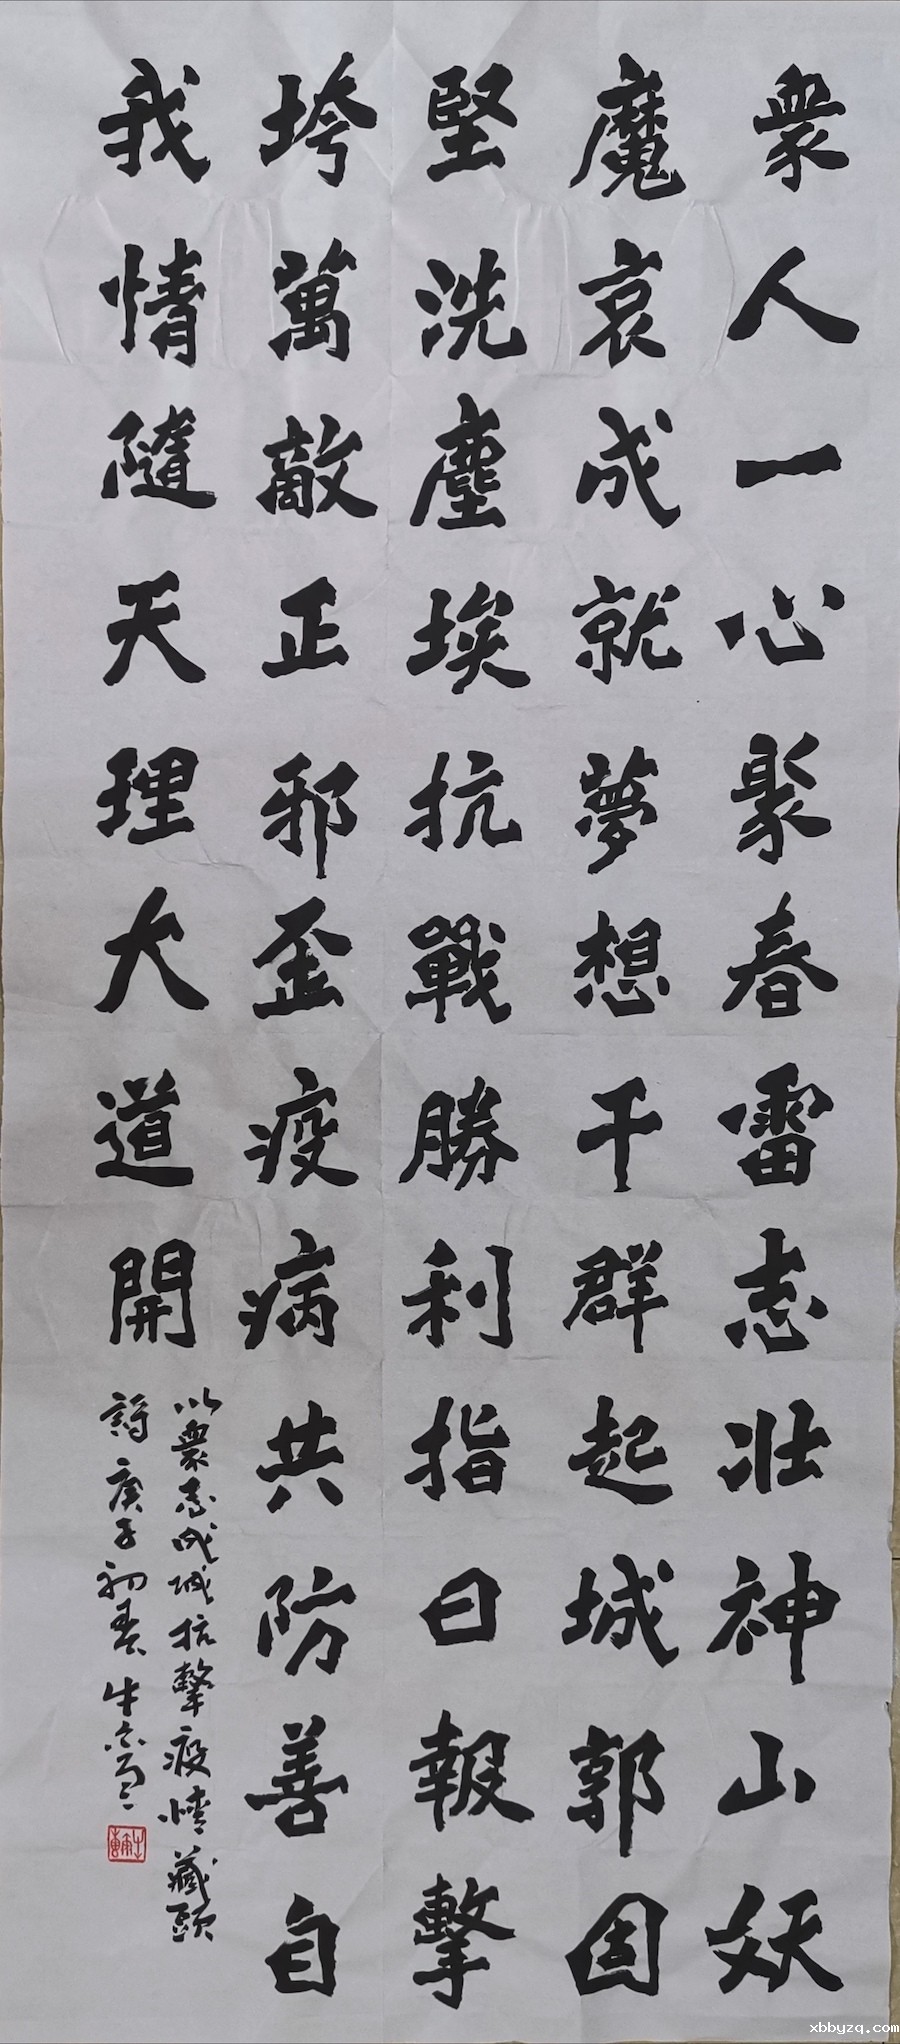 衆人一心聚春雷志壯神山妖
魔哀成就夢想干群起城郭固
堅洗塵埃抗戰勝利指日報擊
垮萬敵正邪歪疫病共防善自
我情隨天理大道開
以衆志成城抗擊疫情藏頭
詩庚子初春牛
xbbyzq.com